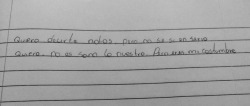 Quiero decirte adios, pero no se si en serio
quiero, no es sano lo nuestro. Pero eres mi costumbre